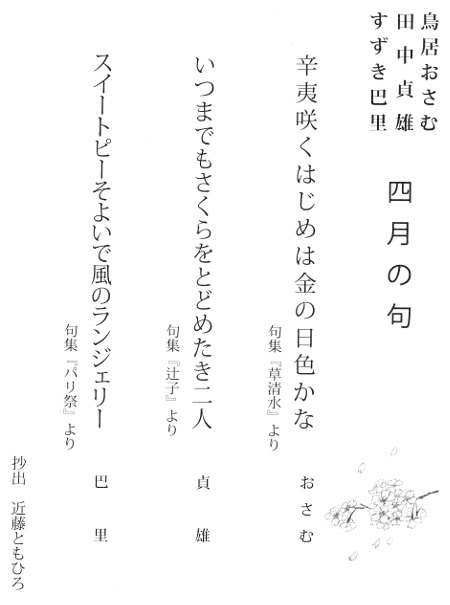 鳥居おさむ
田中貞雄
すずき巴里
四月の句
辛夷咲くはじめは金の日色かな
おさむ
句集『草清水』より
いつまでもさくらをとどめたき二人
貞雄
句集『辻子』より
スイートピーそよいで風のランジェリー
巴里
句集『パリ祭』より
抄出 近藤ともひろ